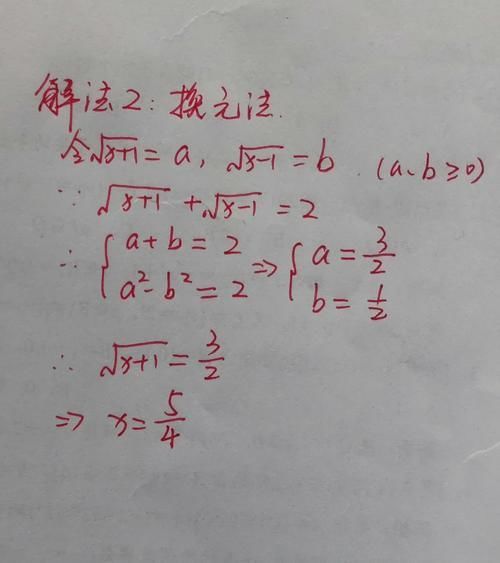 解法2：换元法.
令√(x+1) = a, √(x-1) = b. (a、b ≥ 0)
∵ √(x+1) + √(x-1) = 2
∴ { a + b = 2 ⇒ { a = 3/2
a² - b² = 2 b = 1/2
∴ √(x+1) = 3/2
⇒ x = 5/4